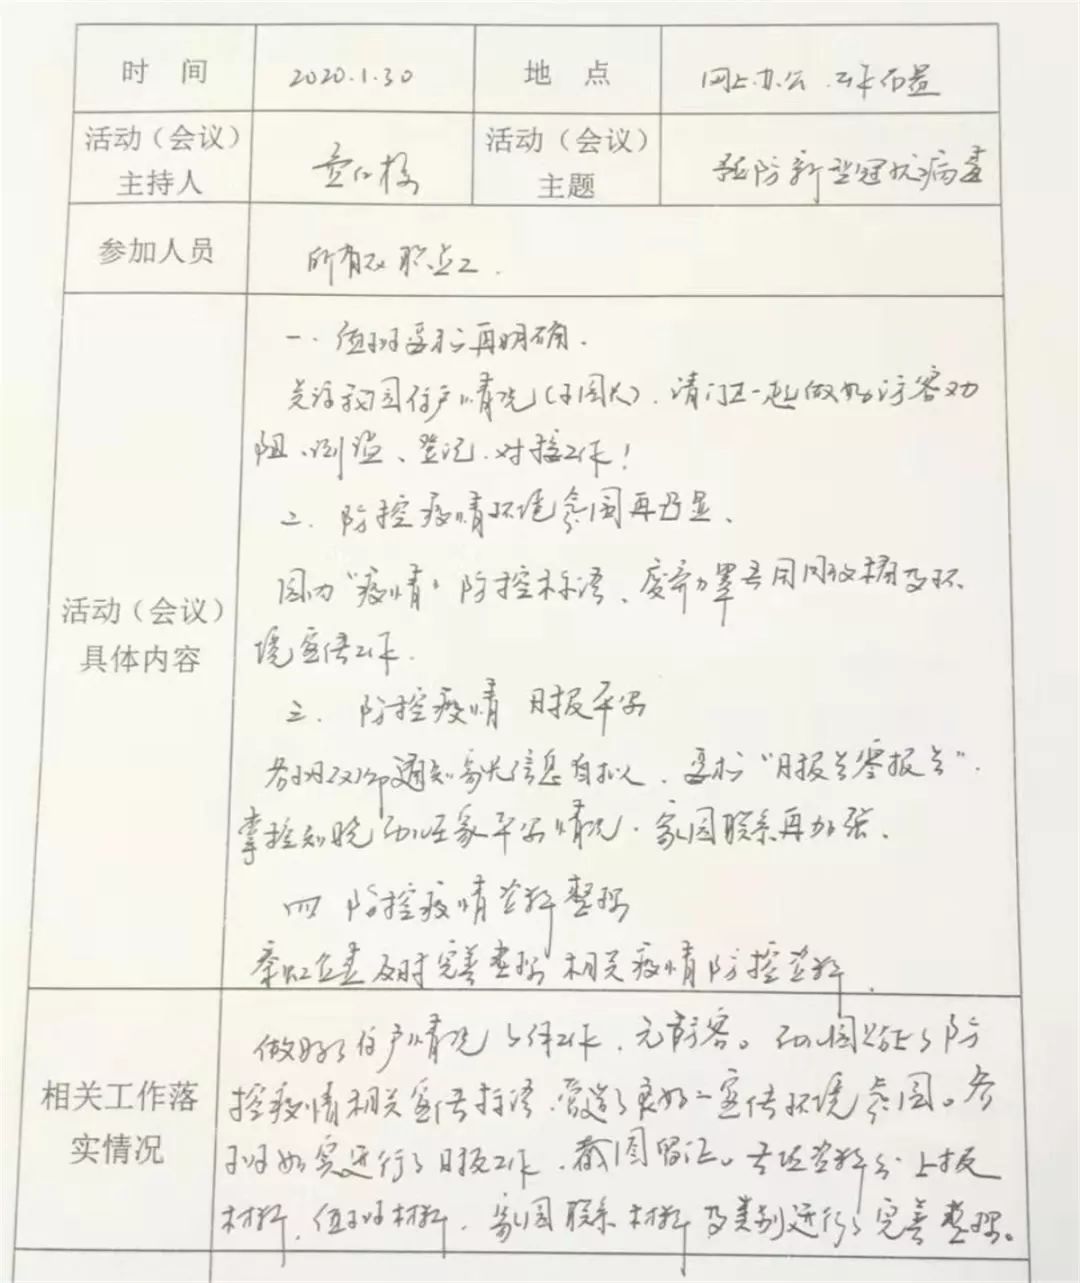 时 间 2020.1.30 地 点 网上办公 工作布置
活动（会议）主持人 活动（会议）主题 预防新型冠状病毒
参加人员 所有教职员工.
活动（会议）具体内容
一. 值班要求再明确.
关注我园住户情况(子园大). 请门卫一起做好访客劝
阻、测温、登记、对接工作!
二. 防控疫情环境氛围再凸显、
园内"疫情"防控标语、废弃口罩专用回收桶及环
境宣传工作.
三. 防控疫情 日报平安
各班教师通知家长信息自拟. 要求"日报告零报告".
掌控知晓幼儿在家平安情况. 家园联系再加强.
四 防控疫情资料整理
及时完善整理相关疫情防控资料.
相关工作落实情况
做好了住户情况 工作. 无访客。幼儿园张贴了防
控疫情相关宣传标语. 营造了良好的宣传环境氛围。各
班如实进行了日报工作. 截图留证。各项资料分上报
材料. 值班材料. 家园联系材料及类别进行了完善整理。